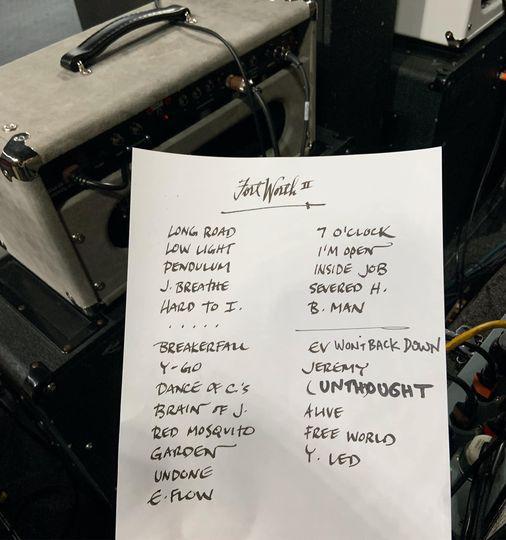 Fort Worth II
LONG ROAD
LOW LIGHT
PENDULUM
J. BREATHE
HARD TO I.
.....
BREAKERFALL
Y-GO
DANCE OF C.'S
BRAIN OF J.
RED MOSQUITO
GARDEN
UNDONE
E. FLOW
7 O'CLOCK
I'M OPEN
INSIDE JOB
SEVERED H.
B. MAN
EV WON'T BACK DOWN
JEREMY
(UNTHOUGHT
ALIVE
FREE WORLD
Y. LED